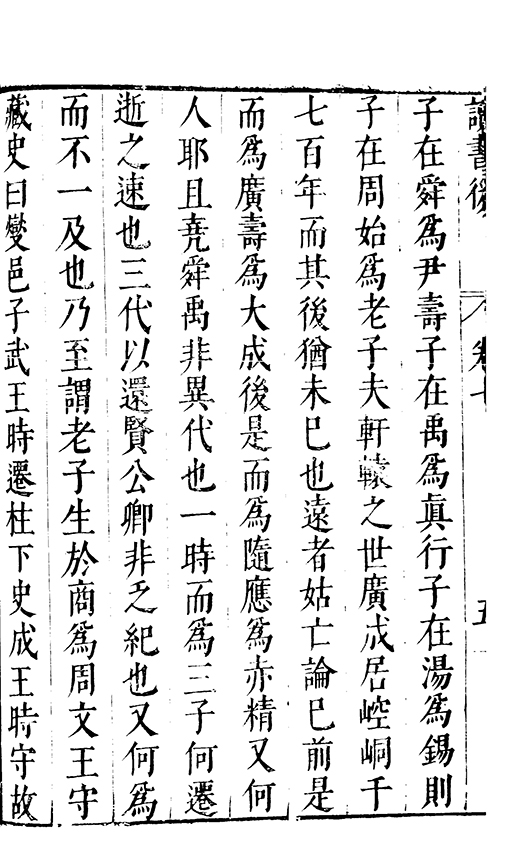 讀書後 卷七 五
子在舜爲尹壽子在禹爲眞行子在湯爲錫則
子在周始爲老子夫軒轅之世廣成居崆峒千
七百年而其後猶未巳也遠者姑亡論巳前是
而爲廣壽爲大成後是而爲隨應爲赤精又何
人耶且堯舜禹非異代也一時而爲三子何遷
逝之速也三代以還賢公卿非乏紀也又何爲
而不一及也乃至謂老子生於商爲周文王守
藏史曰燮邑子武王時遷柱下史成王時守故